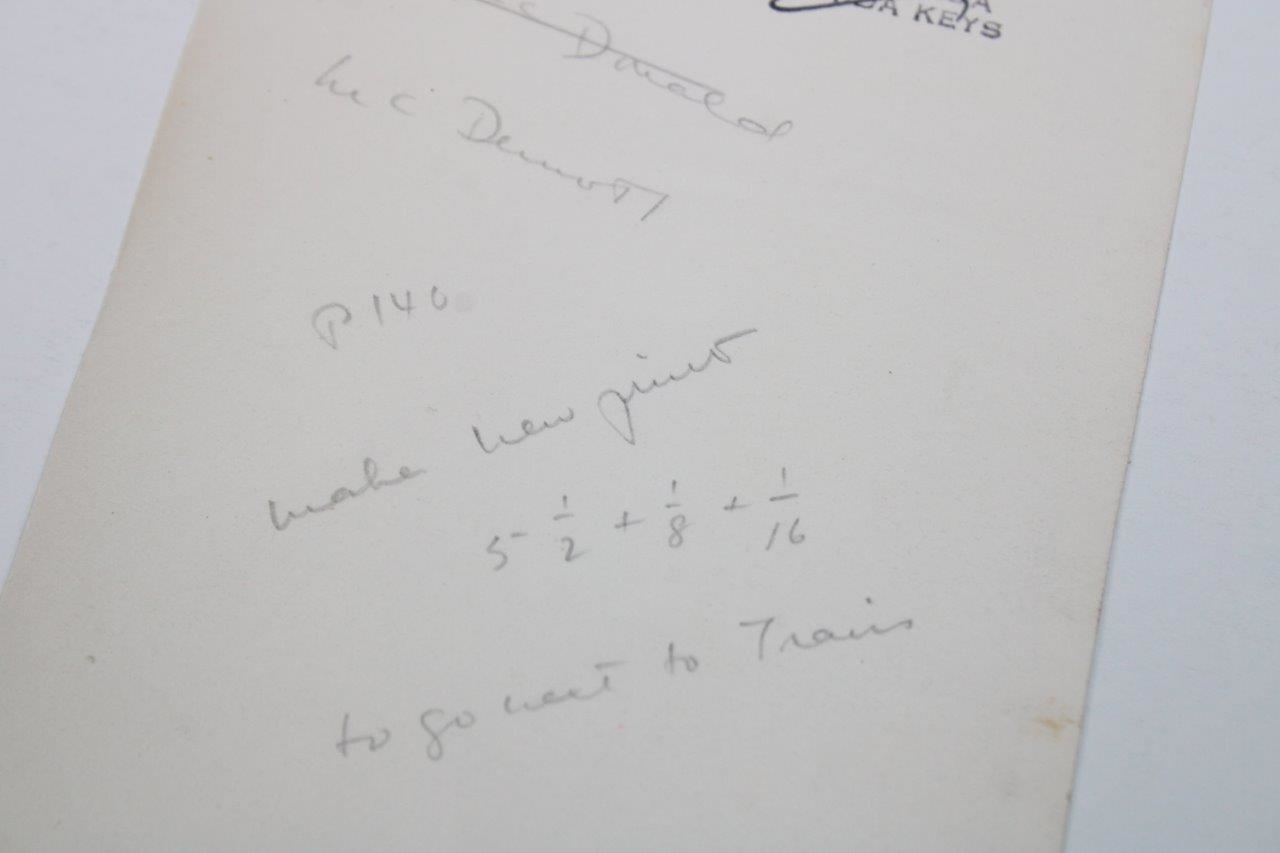 KEYS
Mc Donald
Mc Dermott
P 140
make new print
5 - 1/2 + 1/8 + 1/16
to go next to Trains